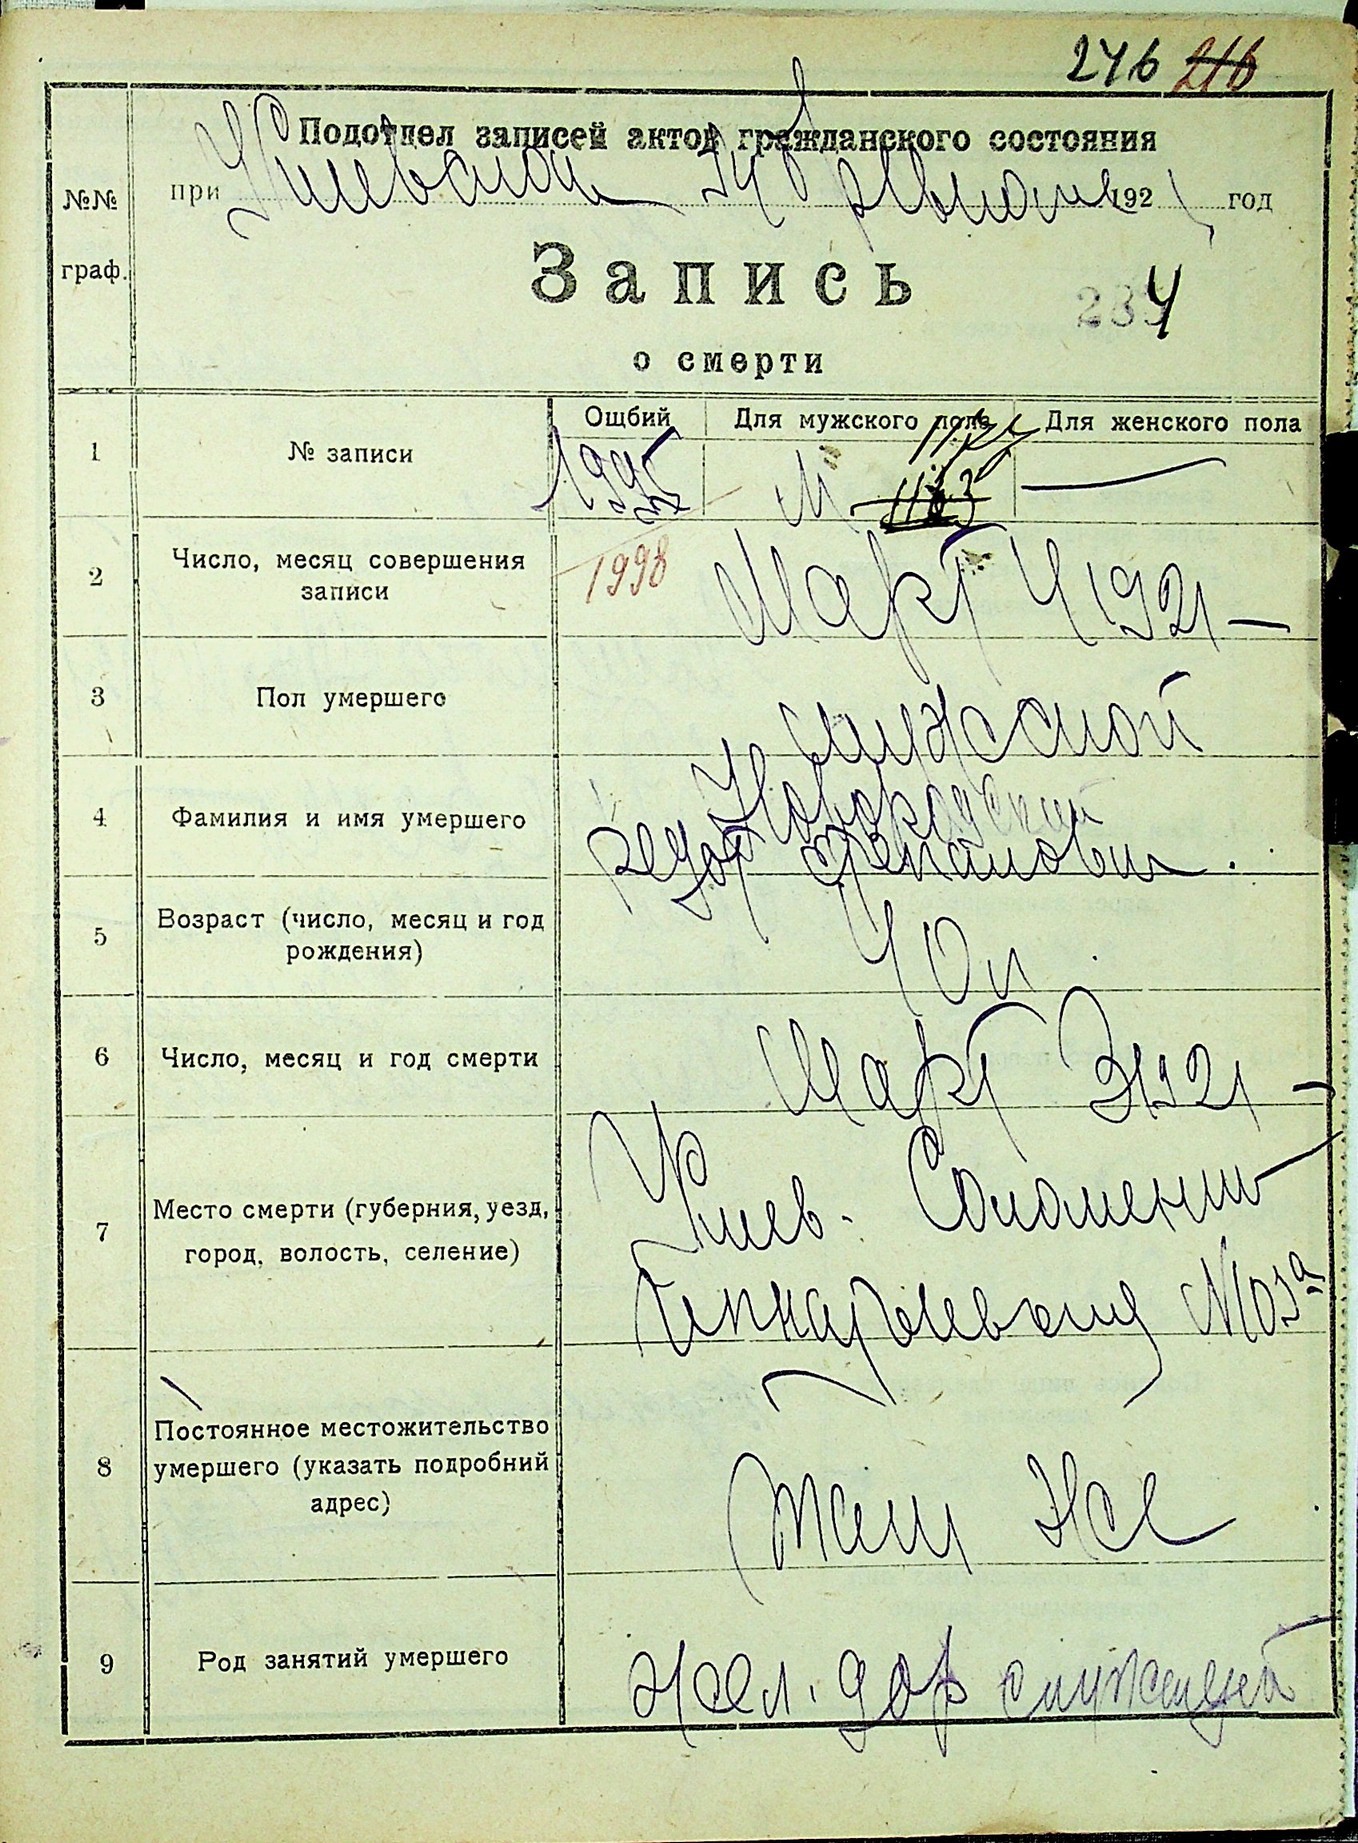 246 216
Подотдел записей актов гражданского состояния
при Киевском Губ 1921 год
№№
граф.
Запись
234
о смерти
Ощбий Для мужского пола Для женского пола
1 № записи 1995 М 1163 —
1998
2 Число, месяц совершения
записи
Март 4 1921 —
3 Пол умершего мужской
4 Фамилия и имя умершего
Федот Степанович
5 Возраст (число, месяц и год
рождения)
40 л
6 Число, месяц и год смерти Март 3 1921 —
7 Место смерти (губерния, уезд,
город, волость, селение)
Киев. Соломенка
№ 103а
8 Постоянное местожительство
умершего (указать подробний
адрес)
там же
9 Род занятий умершего жел. дор служащий